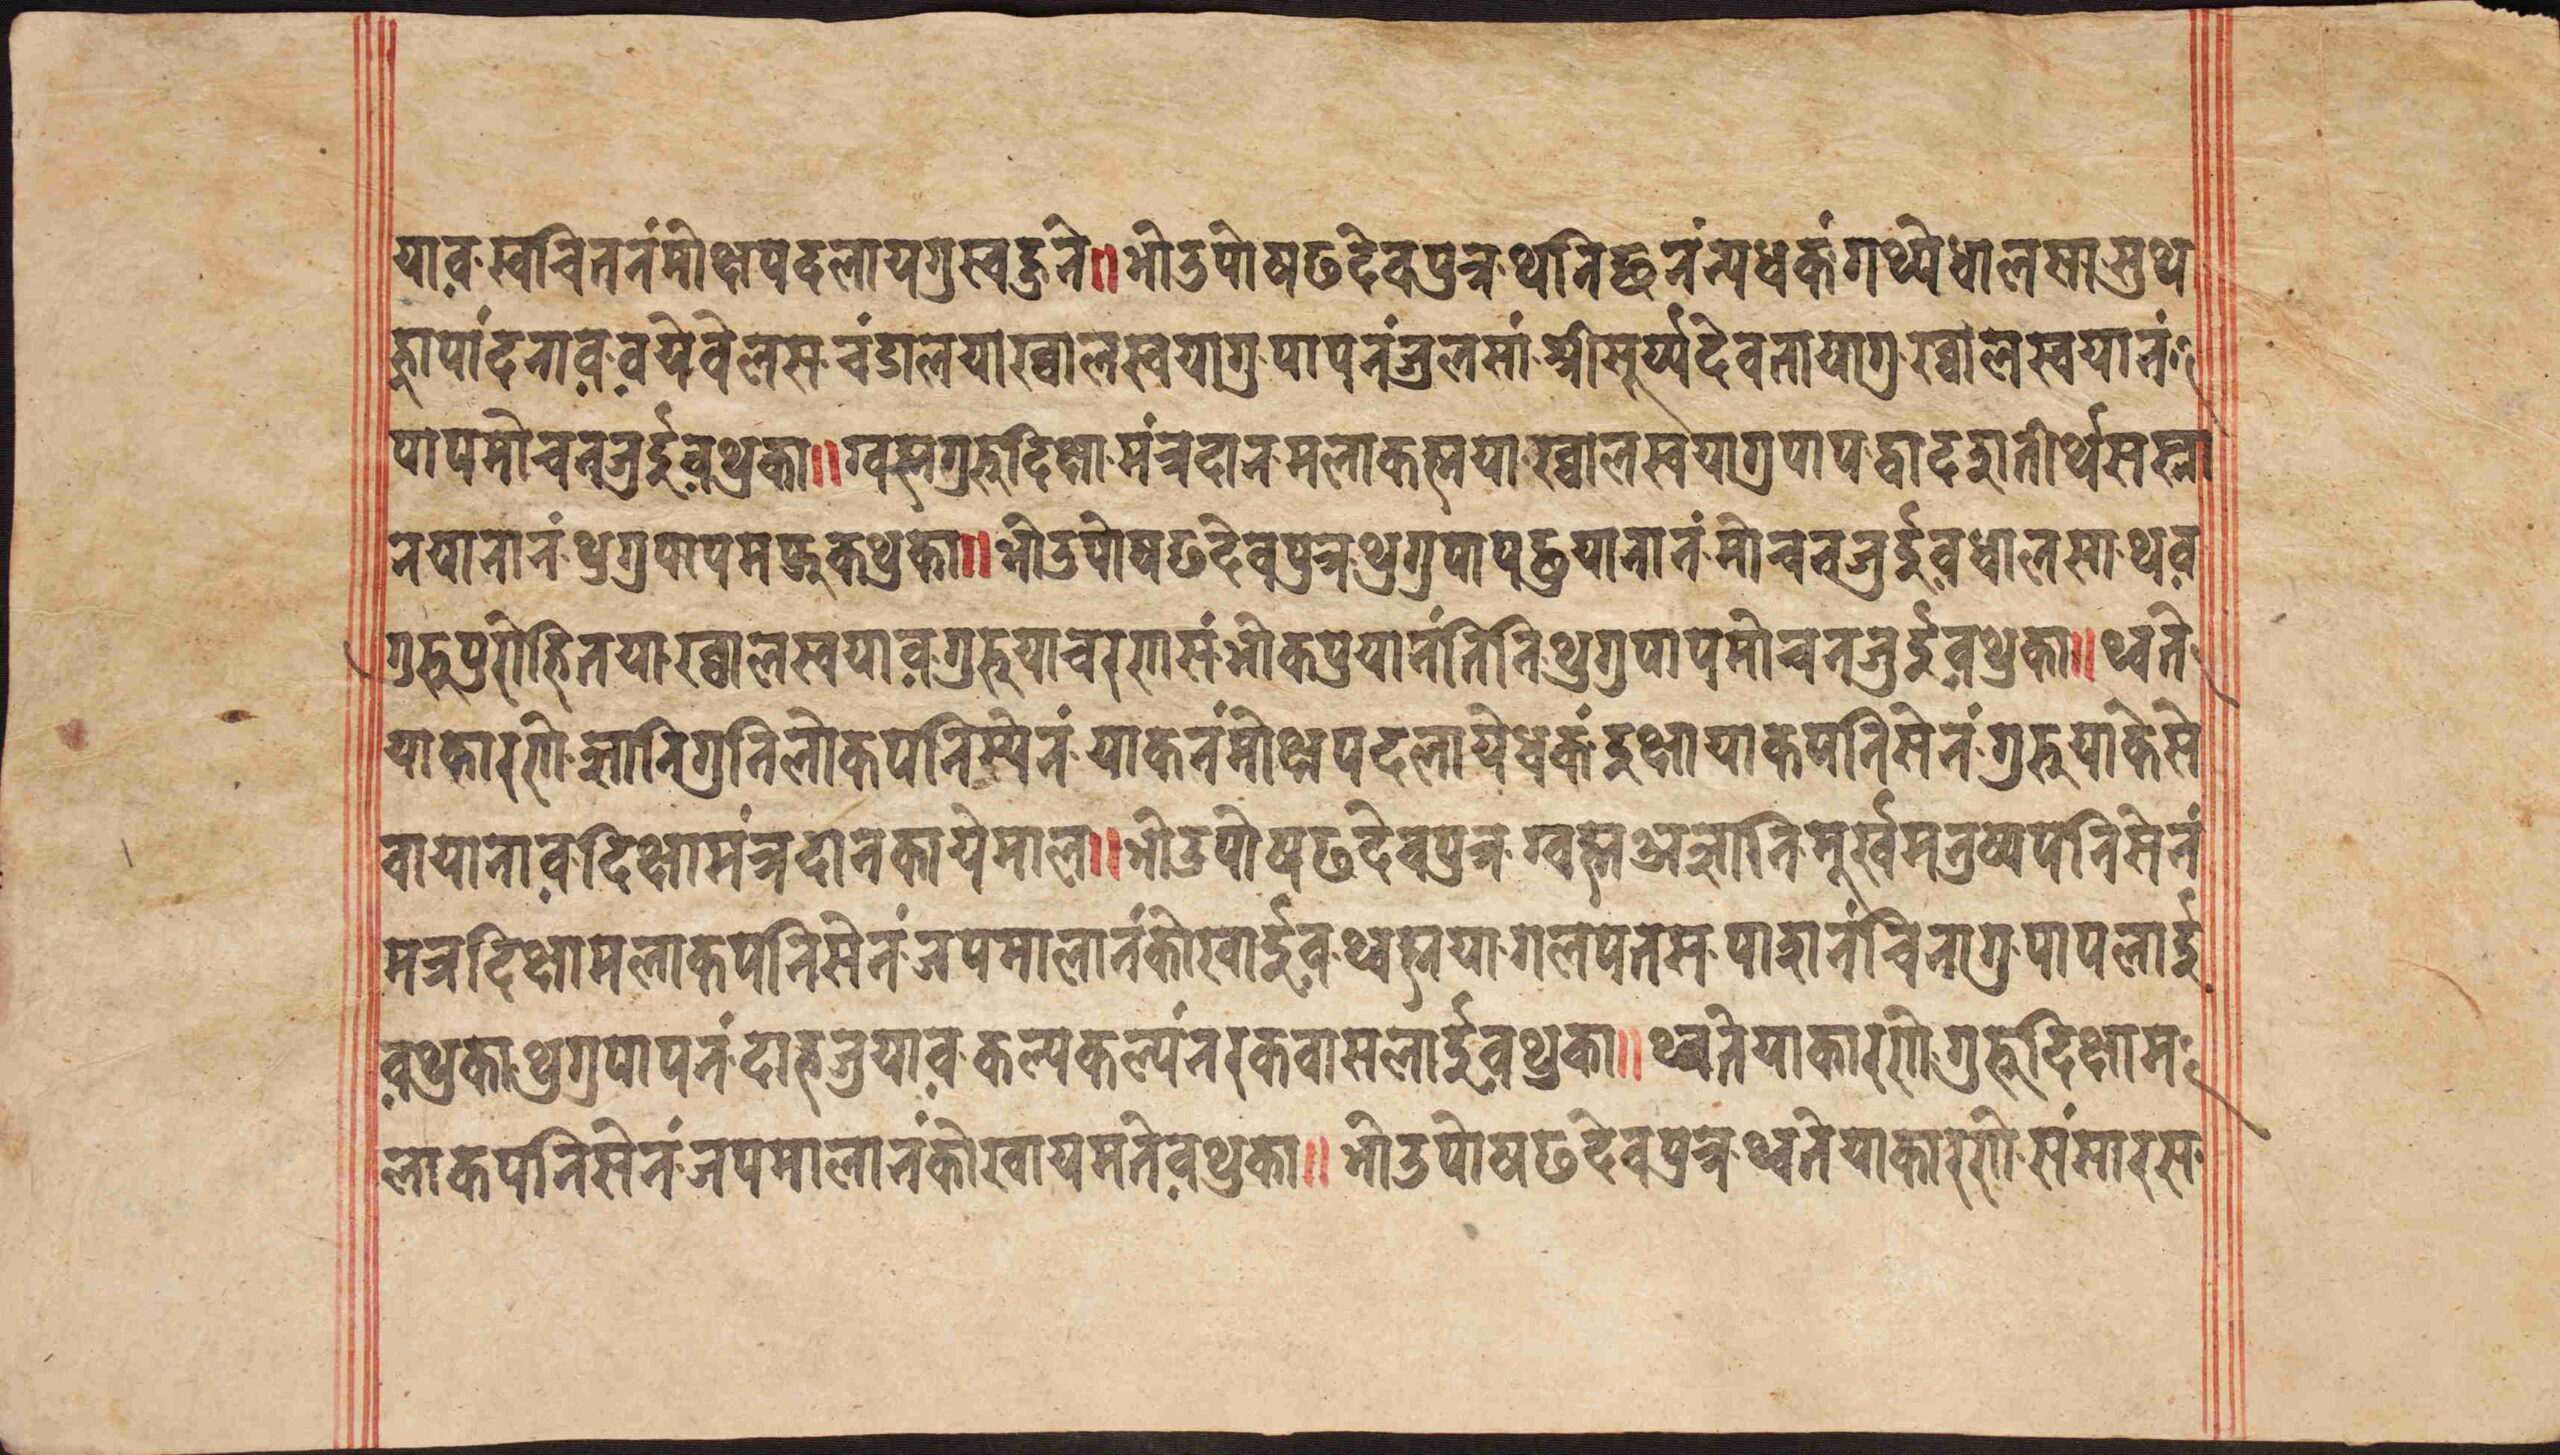 याव स्वचित नं मोक्षपद लायगु स्वहुने॥ भो उपोषढ देवपुत्र थनि छनं न्यधकं गथ्ये धालसा सुथ
ह्नापां दनाव वये वेलस चंडालया ख्वाल स्वयागु पापनं जुलसां श्रीसूर्य्य देवतायागु ख्वाल स्वयानं
पाप मोचन जुईव थुका॥ ग्वह्म गुरु दिक्षा मंत्रदान मलाकह्मया ख्वाल स्वयागु पाप द्वादश तीर्थस स्ना
न यानानं थुगु पाप मफुक थुका॥ भो उपोषढ देवपुत्र थुगु पाप छु यानानं मोचन जुईव धालसा थव
गुरु पुरोहितया ख्वाल स्वयाव गुरुया चरणसं भोकपुयानं तिनि थुगु पाप मोचन जुईव थुका॥ थ्वते
या कारणे ज्ञानि गुनि लोकपनिस्येनं याकनं मोक्षपद लाये धकं इक्षा याकपनिसेनं गुरुयाके से
वा यानाव दिक्षा मंत्रदान काये माल॥ भो उपोषढ देवपुत्र ग्वह्म अज्ञानि मुर्ख मनुष्यपनिसेनं
मंत्र दिक्षा मलाकपनिसेनं जपमालानं कोखाईव थ्वह्मया गलपतस पाशनं चिनागु पाप लाई
व थुका थुगु पापनं दाह जुयाव कल्प कल्पं नरक वास लाईव थुका॥ थ्वतेया कारणे गुरु दिक्षा म
लाकपनिसेनं जपमालानं कोखाय मतेव थुका॥ भो उपोषढ देवपुत्र थ्वतेया कारणे संसारस